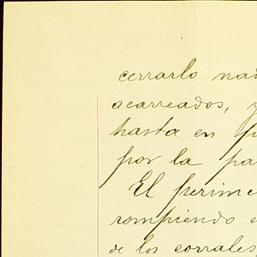 cerrarlo
acarreados, y
hasta en
por la
El perime
rompiendo e
de los corrales,